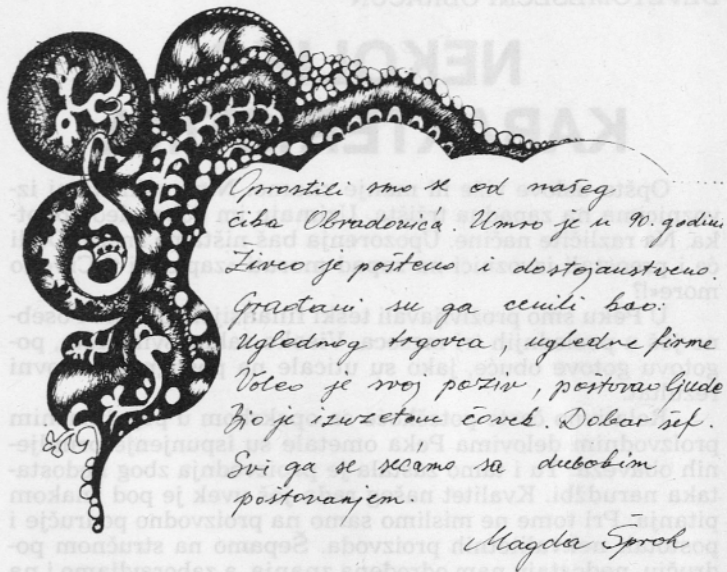 Oprostili smo se od našeg
Obradovića. Umro je u 90. godini.
Živeo je pošteno i dostojanstveno.
Građani su ga cenili kao
uglednog trgovca, ugledne firme
Voleo je svoj poziv, poštovao ljude
bio je izuzetan čovek. Dobar šef.
Svi ga se sećamo sa dubokim
poštovanjem.
Magda Šproh